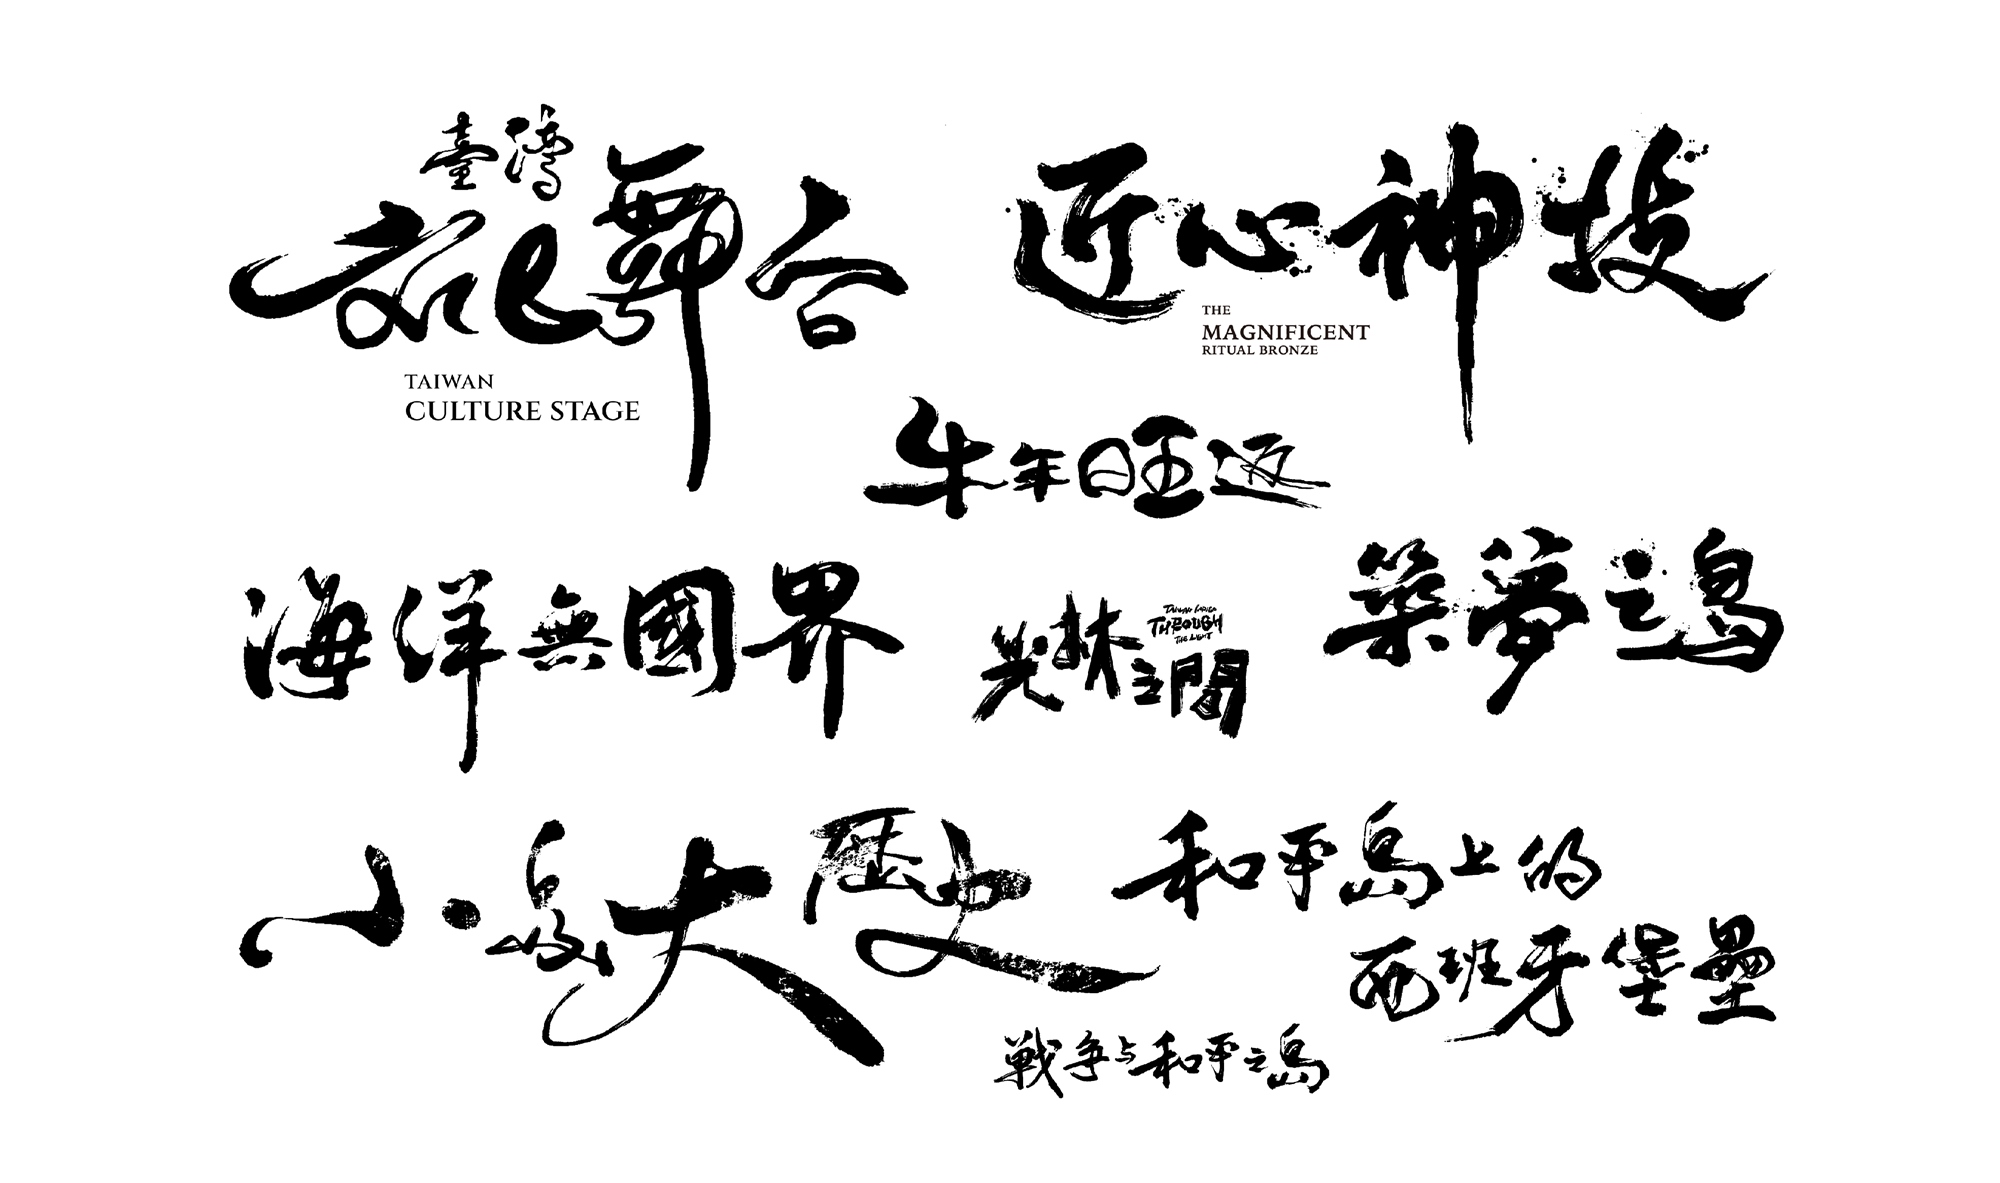 臺灣
文化舞台
TAIWAN
CULTURE STAGE
匠心神技
THE
MAGNIFICENT
RITUAL BRONZE
牛年旺返
海洋無國界
光林之間
THROUGH
THE LIGHT
築夢之島
小島大歷史
和平島上的
西班牙堡壘
戰爭与和平之島